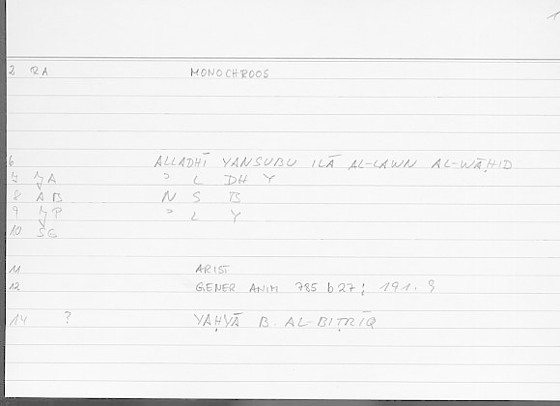 2 RA MONOCHROOS
6 ALLADHĪ YANSUBU ILĀ AL-LAWN AL-WĀḤID
7 ʾ L DH Y
8 AB N S B
9 ʾ L Y
10 SG
11 ARIST
12 GENER ANIM 785 b 27; 191.9
14 ? YAḤYĀ B. AL-BIṬRĪQ